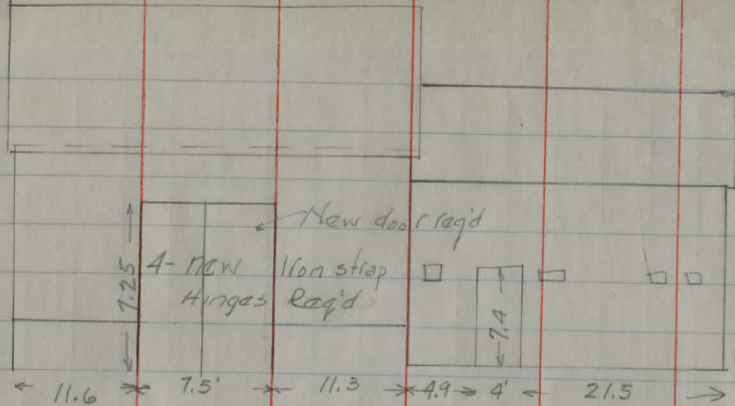 New door req'd
4- new Iron strap
Hinges Req'd
7.25
7.4
11.6 7.5' 11.3 4.9 4' 21.5